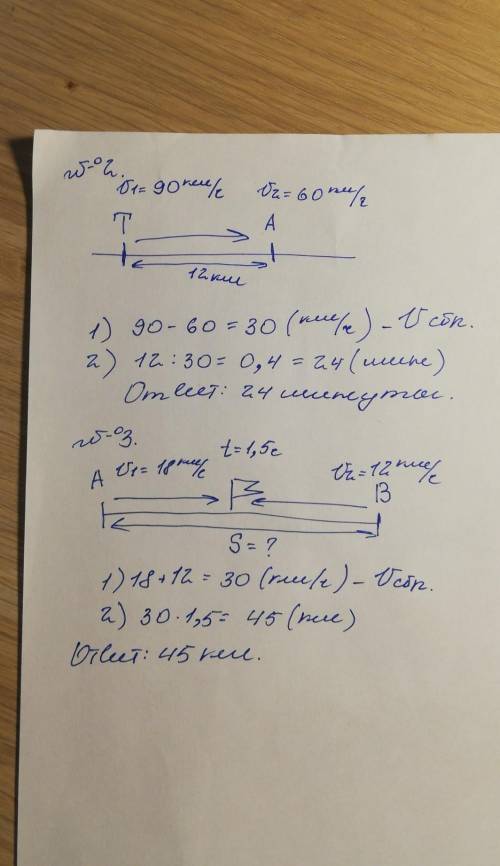 №2.
V1=90км/ч V2=60км/ч
T A
12км
1) 90-60=30 (км/ч) - Vсбл.
2) 12:30=0,4=24(мин)
Ответ: 24 минуты.
№3.
A V1=18км/ч t=1,5ч V2=12км/ч B
S=?
1) 18+12=30 (км/ч) - Vсбл.
2) 30·1,5= 45 (км)
Ответ: 45 км.